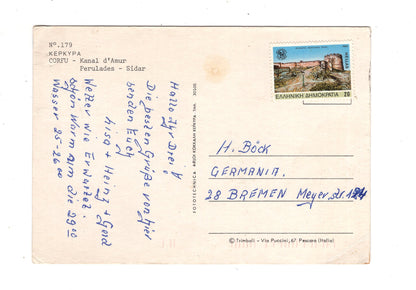 Nº.179
ΚΕΡΚΥΡΑ
CORFU - Kanal d'Amur
Perulades - Sidar
Hallo Ihr Drei!
Die besten Grüße von hier
senden Euch
Lisa + Heinz + Gerd
Wetter wie Erwartet.
schön Warm um die 29°
Wasser 25-26°
ΕΛΛΗΝΙΚΗ ΔΗΜΟΚΡΑΤΙΑ 20
HELLAS
FOTOTECHNICA
H. Böck
GERMANIA.
28 BREMEN Meyer,str. 124
© Trimboli - Via Puccini, 67. Pescara (Italia)